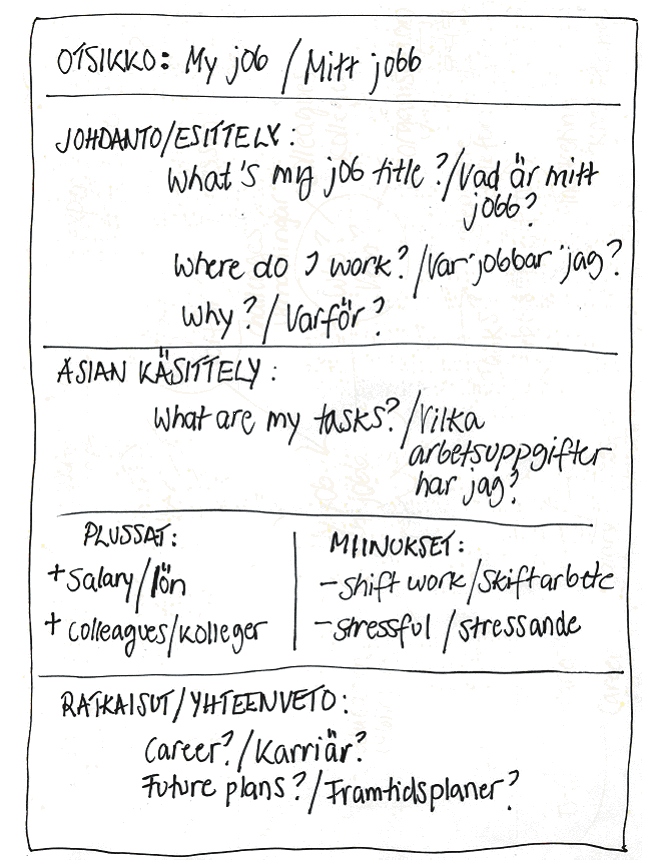 OTSIKKO: My job / Mitt jobb
JOHDANTO/ESITTELY:
What's my job title?/Vad är mitt
jobb?
Where do I work?/Var jobbar jag?
Why?/Varför?
ASIAN KÄSITTELY:
What are my tasks?/Vilka
arbetsuppgifter
har jag?
PLUSSAT:
+ Salary/lön
+ Colleagues/kolleger
MIINUKSET:
- shift work/Skiftarbete
- stressful/stressande
RATKAISUT/YHTEENVETO:
Career?/Karriär?
Future plans?/Framtidsplaner?